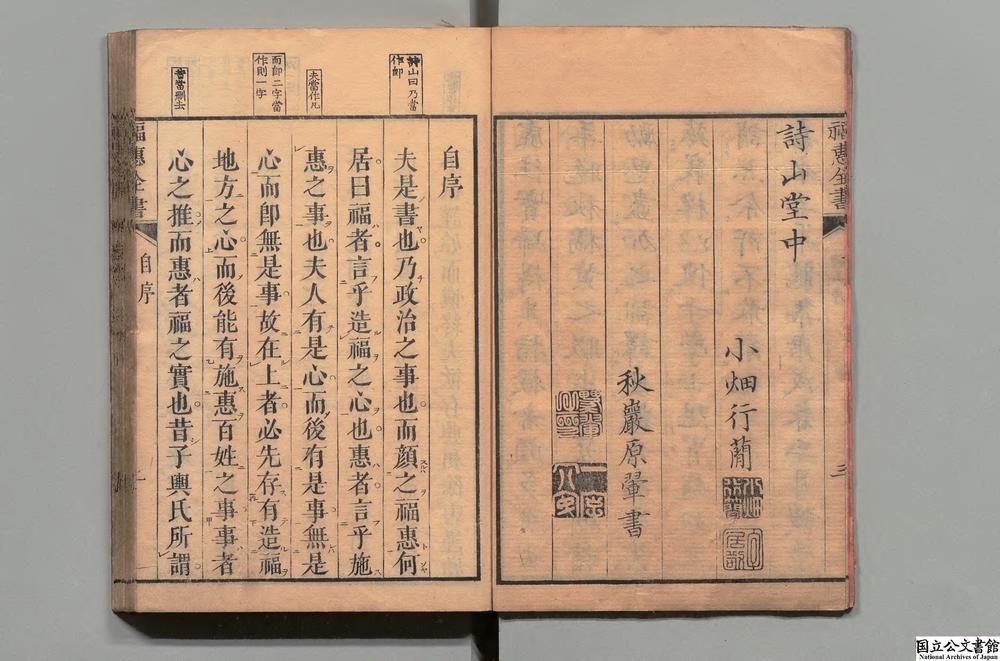 福惠全書
三
詩山堂中
小畑行蕳
秋巖原翬書
詩山曰乃當
作卽
夫當作凡
而卽二字當
作則一字
者當刪去
自序
夫是書也乃政治之事也而顔之福惠何
居曰福者言乎造福之心也惠者言乎施
惠之事也夫人有是心而後有是事無是
心而卽無是事故在上者必先存有造福
地方之心而後能有施惠百姓之事事者
心之推而惠者福之實也昔子輿氏所謂
福惠全書
自序
一
国立公文書館
National Archives of Japan